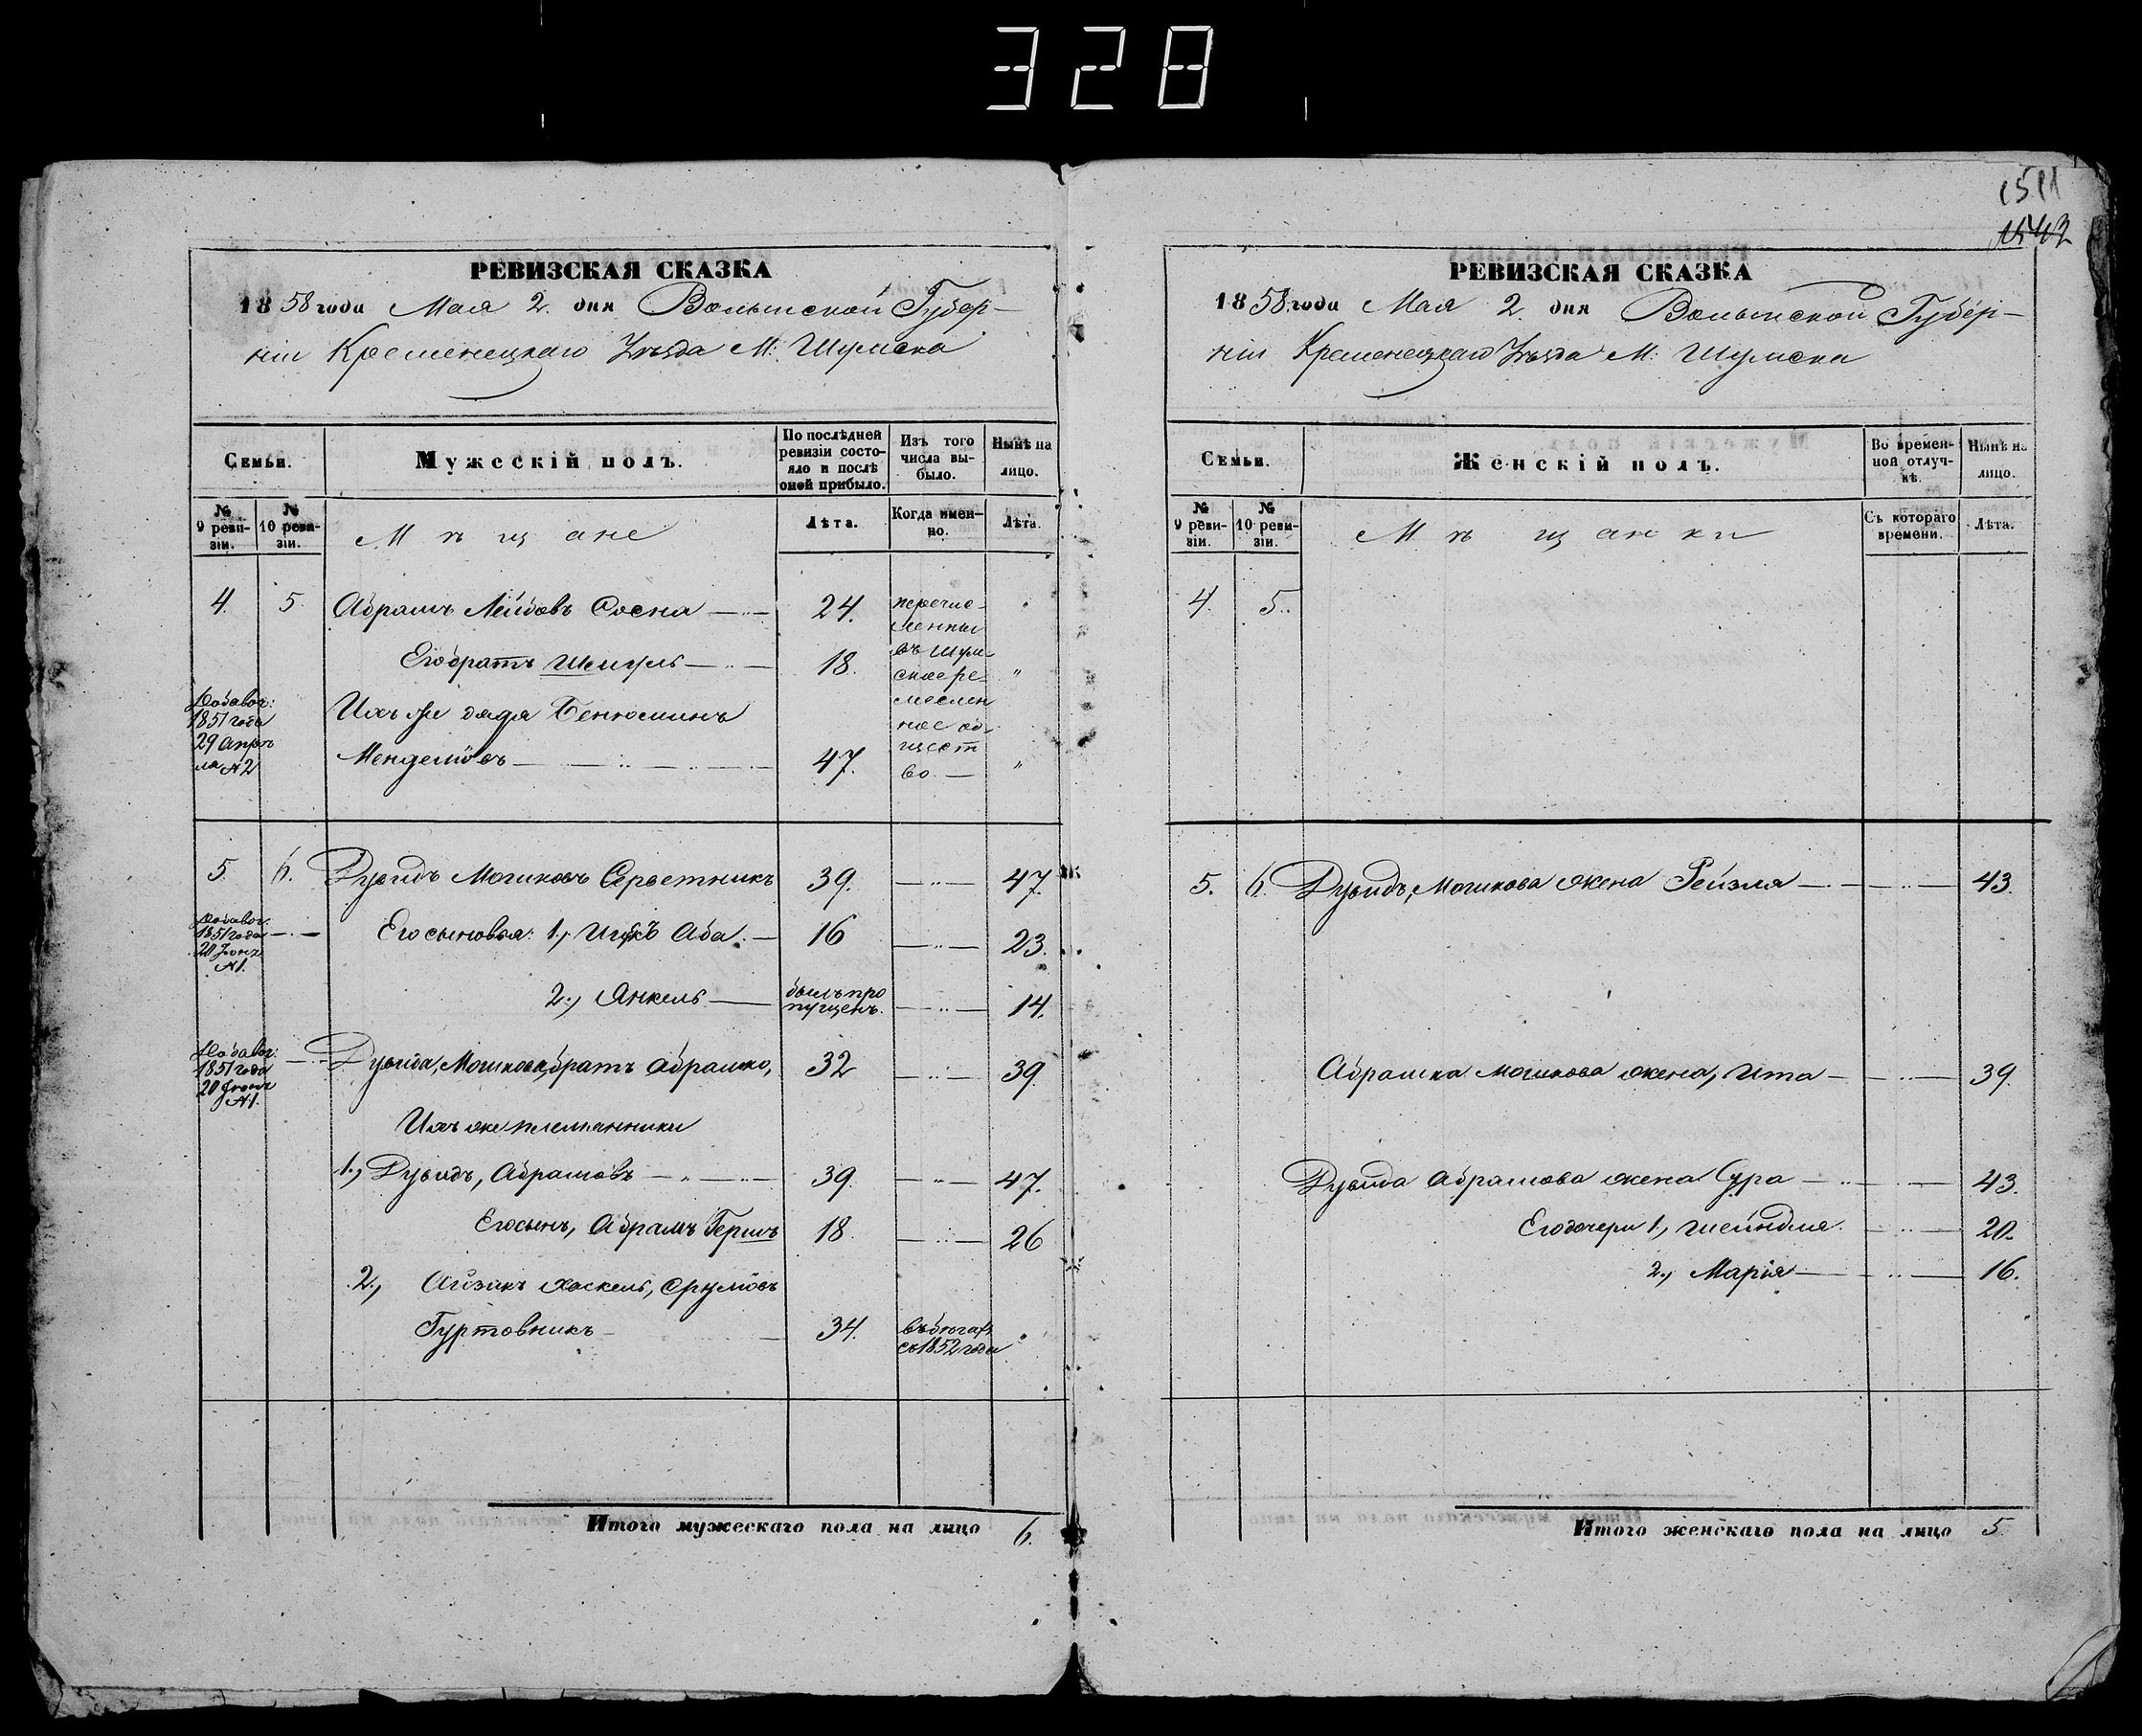 328
1511
1542
РЕВИЗСКАЯ СКАЗКА
1858 года Мая 2. дня Волынской Губер-
ніи Кременецкаго Уѣзда М: Шумска
Семьи.
Мужескій полъ.
По послѣдней ревизіи состо-
яло и послѣ оной прибыло.
Изъ того числа вы-
было.
Нынѣ на лицо.
№ 9 реви-
зіи.
№ 10 реви-
зіи.
Мѣщане
Лѣта.
Когда имен-
но.
Лѣта.
4. 5. Абрамъ Лейбовъ Сосна 24.
Его братъ Шмуль 18.
перечис-
ленны
въ Шум-
ское ре-
меслен
ное об-
щест
во.
Добавоч:
1851 года
29 Апрѣ
ля №2
Ихъ же дядя Бенюминъ
Менделіовъ 47.
5. 6. Дувидъ Мошковъ Серветникъ 39. 47.
Добавоч:
1851 года
20 Іюня
№1.
Его сыновья: 1., Ицкъ Аба 16 23.
2., Янкель былъ про
пущенъ. 14.
Добавоч:
1851 года
20 Іюня
№1.
Дувида, Мошкова, братъ Абрашко, 32 39
Ихъ же племянники
1., Дувидъ, Абрамовъ 39. 47.
Его сынъ, Абрамъ Гершъ 18. 26
2., Айзикъ Хаскель, Срулiовъ
Гуртовникъ 34. въ бѣгахъ
съ 1852 года
Итого мужескаго пола на лицо 6.
РЕВИЗСКАЯ СКАЗКА
1858 года Мая 2. дня Волынской Губер-
ніи Кременецкаго Уѣзда М: Шумска
Семьи.
Женскій полъ.
Во времен-
ной отлуч-
кѣ.
Нынѣ на лицо.
№ 9 реви-
зіи.
№ 10 реви-
зіи.
Мѣщанки
Съ котораго времени.
Лѣта.
4. 5.
5. 6. Дувидъ, Мошкова жена Рейзля 43.
Абрашка Мошкова жена, Ита 39.
Дувида Абрамова жена Сура 43.
Его дочери 1., Шейндля 20.
2., Марія 16.
Итого женскаго пола на лицо 5